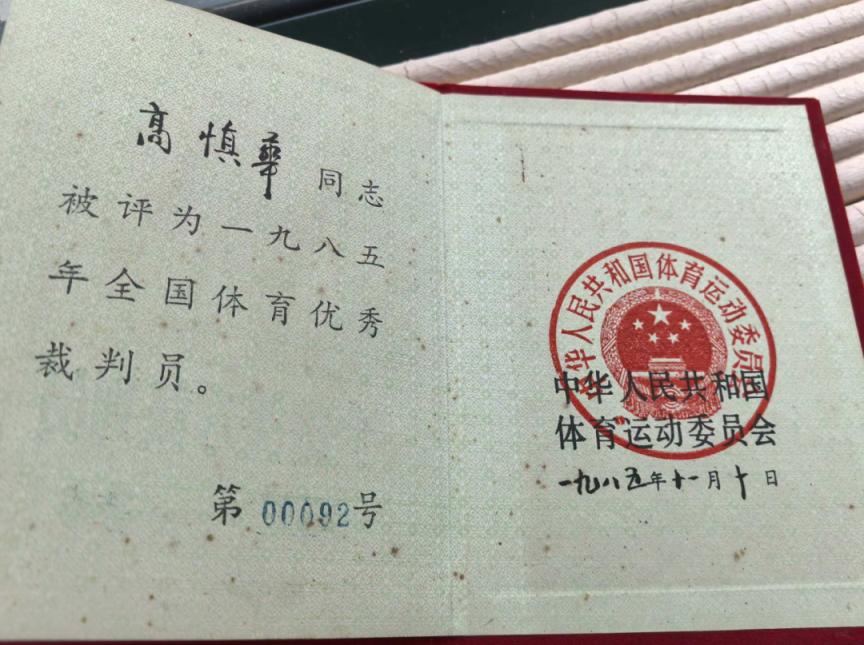 高慎華
同志
被评为一九八五
年全国体育优秀
裁判员。
第00092号
中华人民共和国体育运动委员会
中华人民共和国
体育运动委员会
一九八五年十一月十日